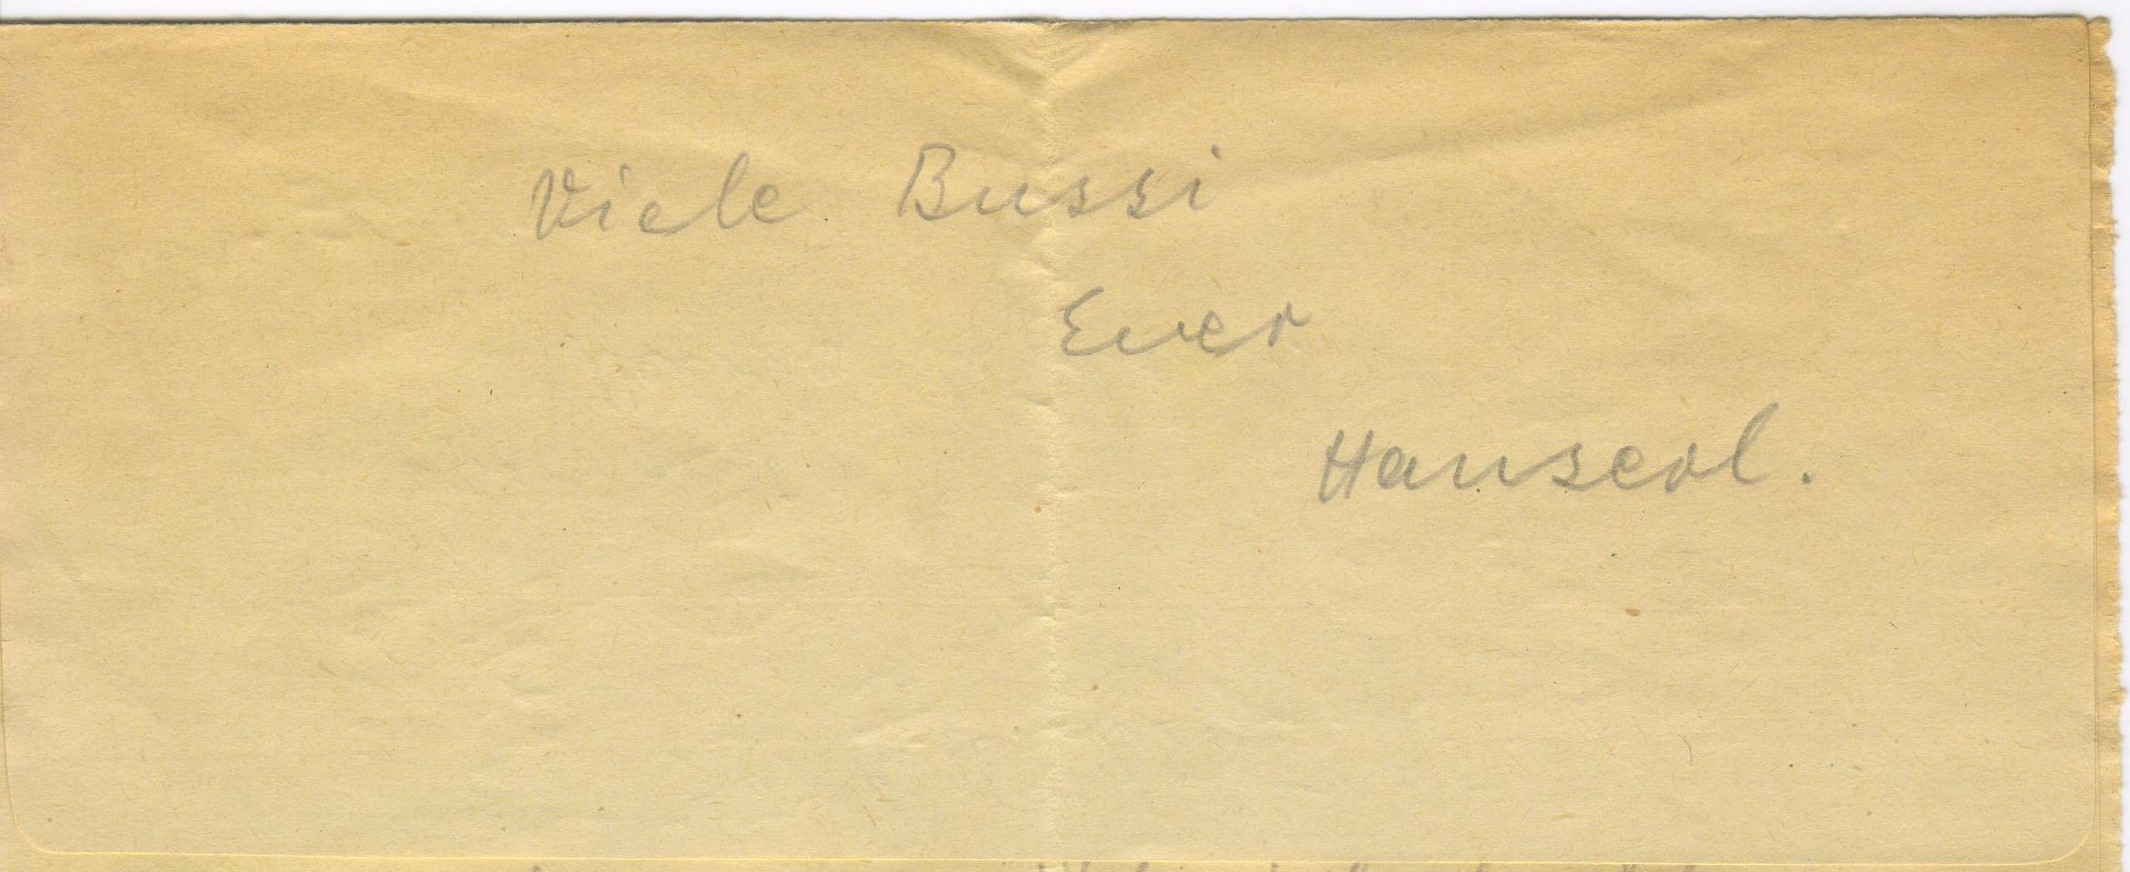 Viele Bussi
Euer
Hanserl.